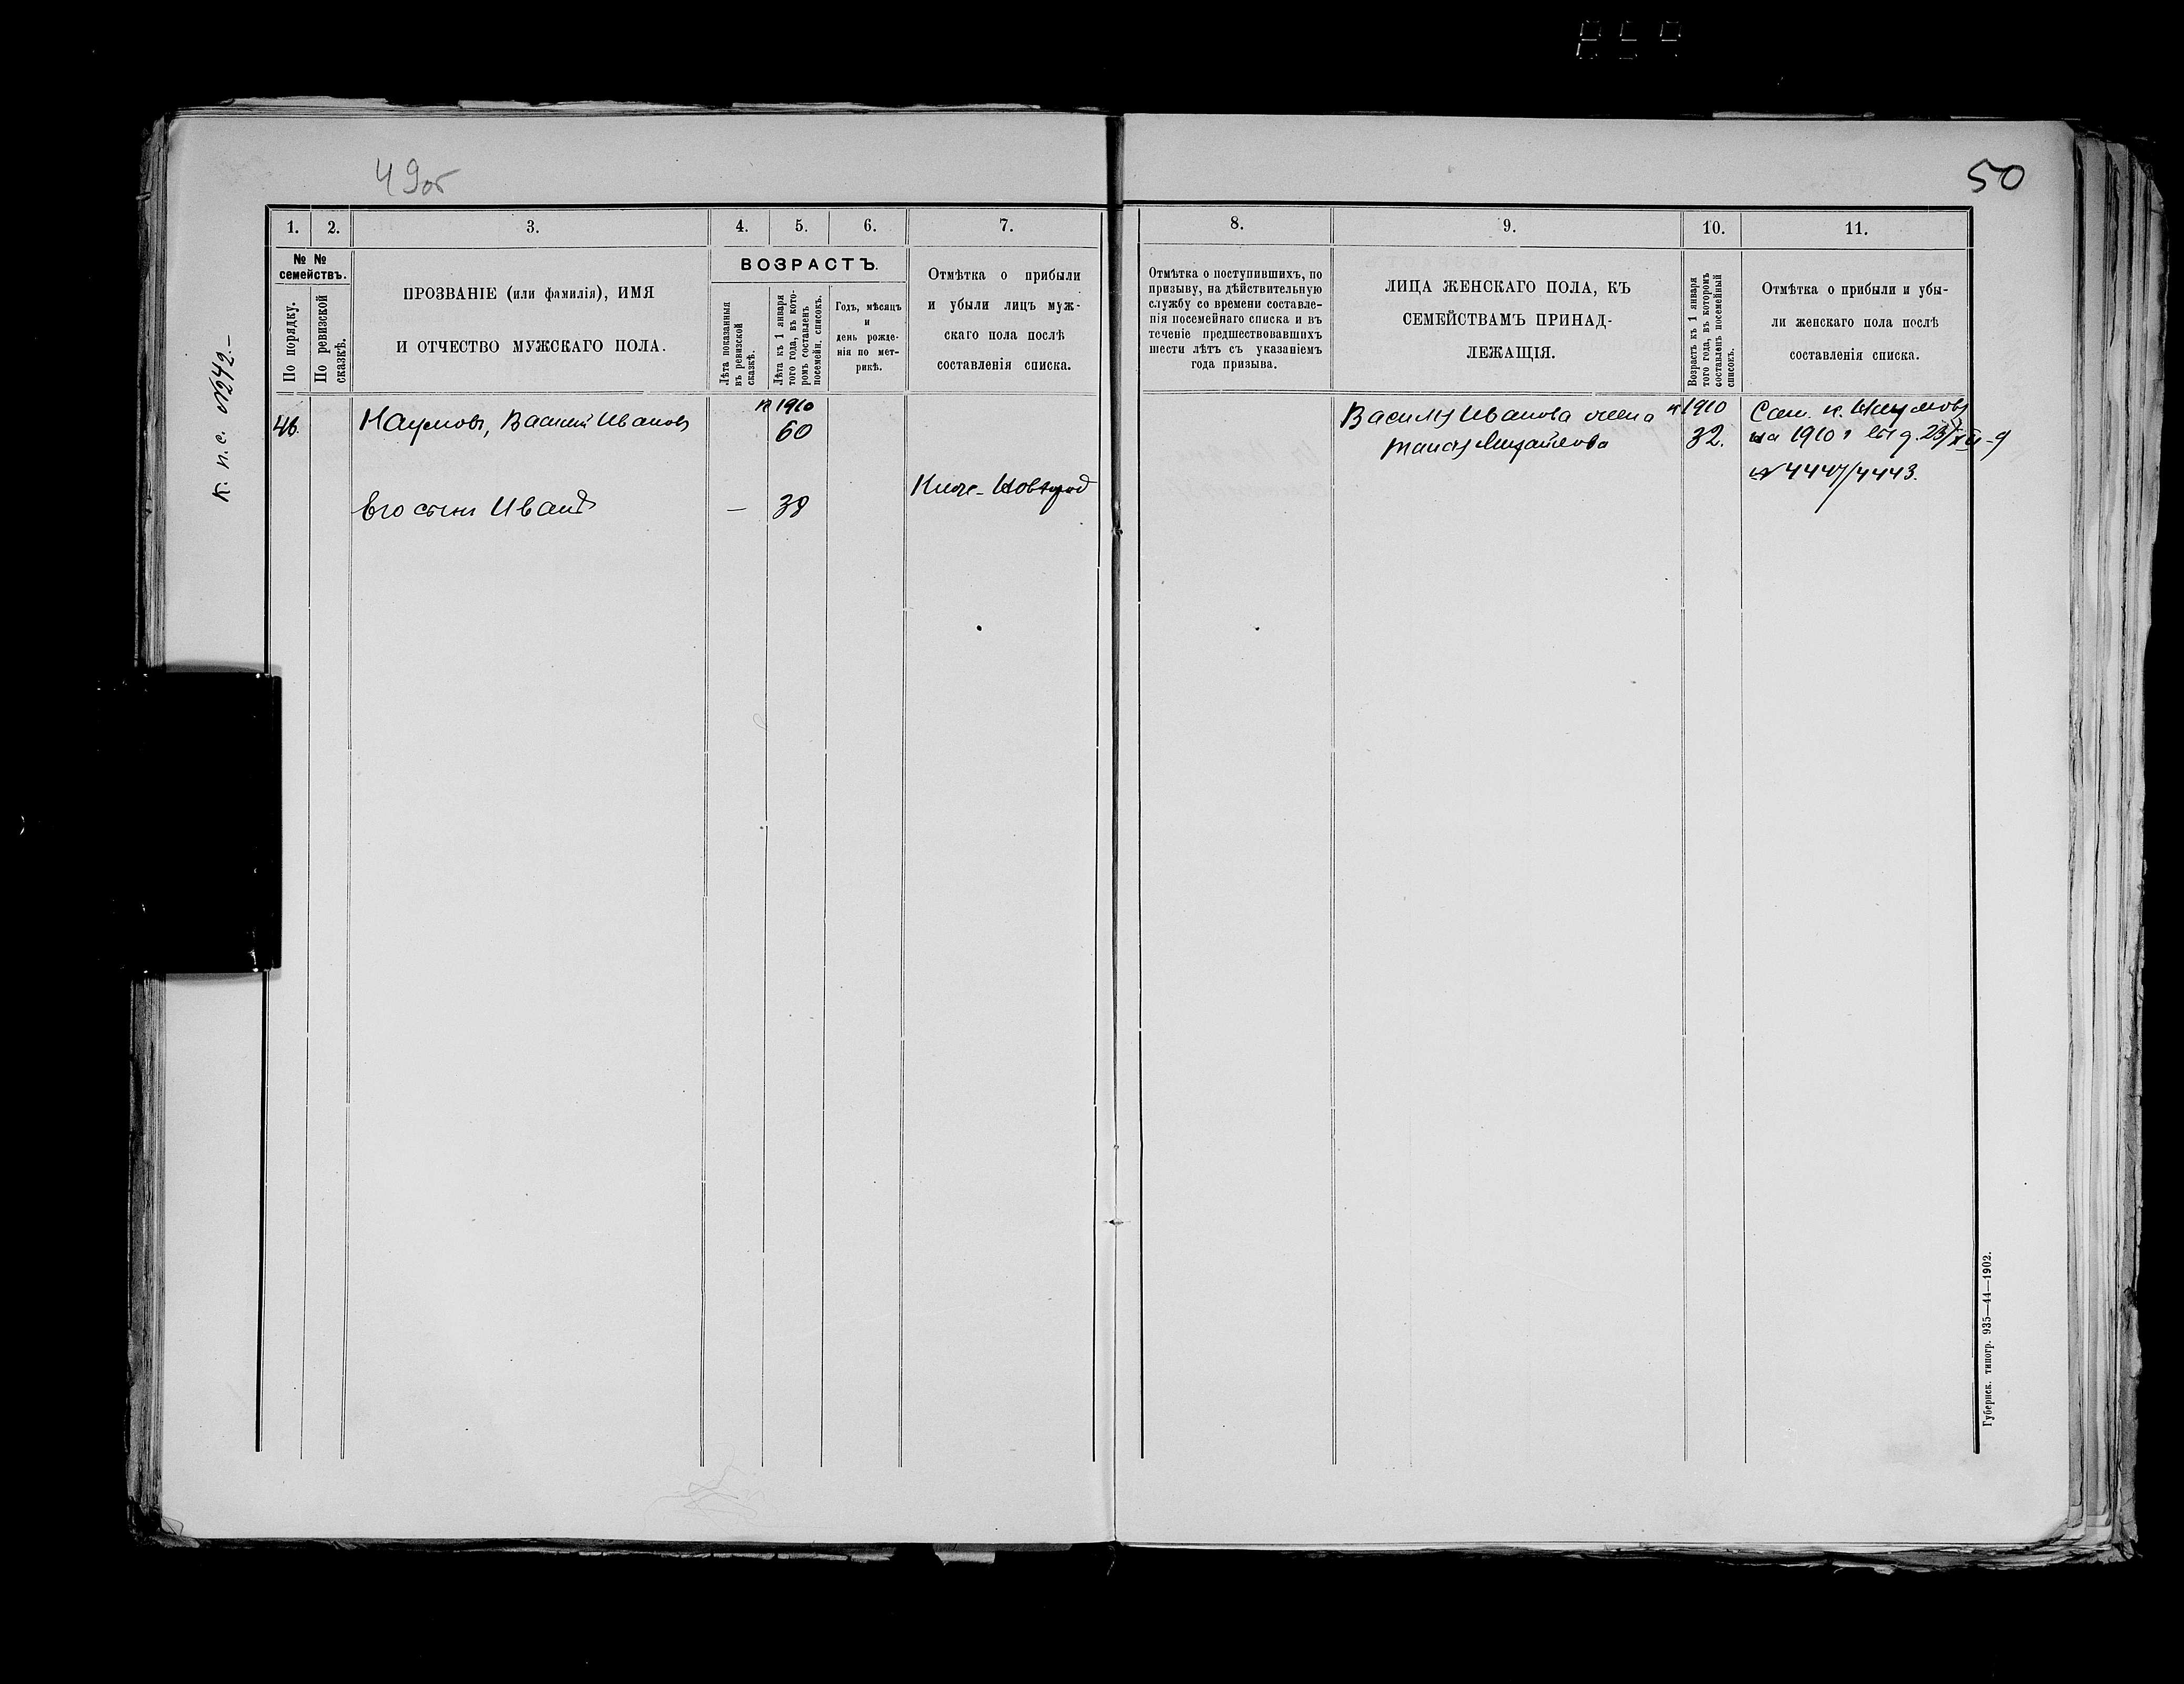 49об
50
К. п. с. №242.-
1.
2.
3.
4.
5.
6.
7.
8.
9.
10.
11.
№ №
семействъ.
По порядку.
По ревизской
сказкѣ.
ПРОЗВАНІЕ (или фамилія), ИМЯ
И ОТЧЕСТВО МУЖСКАГО ПОЛА.
ВОЗРАСТЪ.
Лѣта показанныя
въ ревизской
сказкѣ.
Лѣта къ 1 января
того года, въ кото-
ромъ составленъ
посемейн. списокъ.
Годъ, мѣсяцъ
и
день рожде-
нія по мет-
рикѣ.
Отмѣтка о прибыли
и убыли лицъ муж-
скаго пола послѣ
составленія списка.
Отмѣтка о поступившихъ, по
призыву, на дѣйствительную
службу со времени составле-
нія посемейнаго списка и въ
теченіе предшествовавшихъ
шести лѣтъ съ указаніемъ
года призыва.
ЛИЦА ЖЕНСКАГО ПОЛА, КЪ
СЕМЕЙСТВАМЪ ПРИНАД-
ЛЕЖАЩІЯ.
Возрастъ къ 1 января
того года, въ которомъ
составленъ посемейный
списокъ.
Отмѣтка о прибыли и убы-
ли женскаго пола послѣ
составленія списка.
46.
Наумовъ, Василій Ивановъ
1910
60
Его сынъ Иванъ
—
38
Ниж-Новгород
Василія Иванова жена
Михайлова
1910
32.
Наумовъ
на 1910 г
№ 4447/4443.
Губернск. типогр. 935—44—1902.